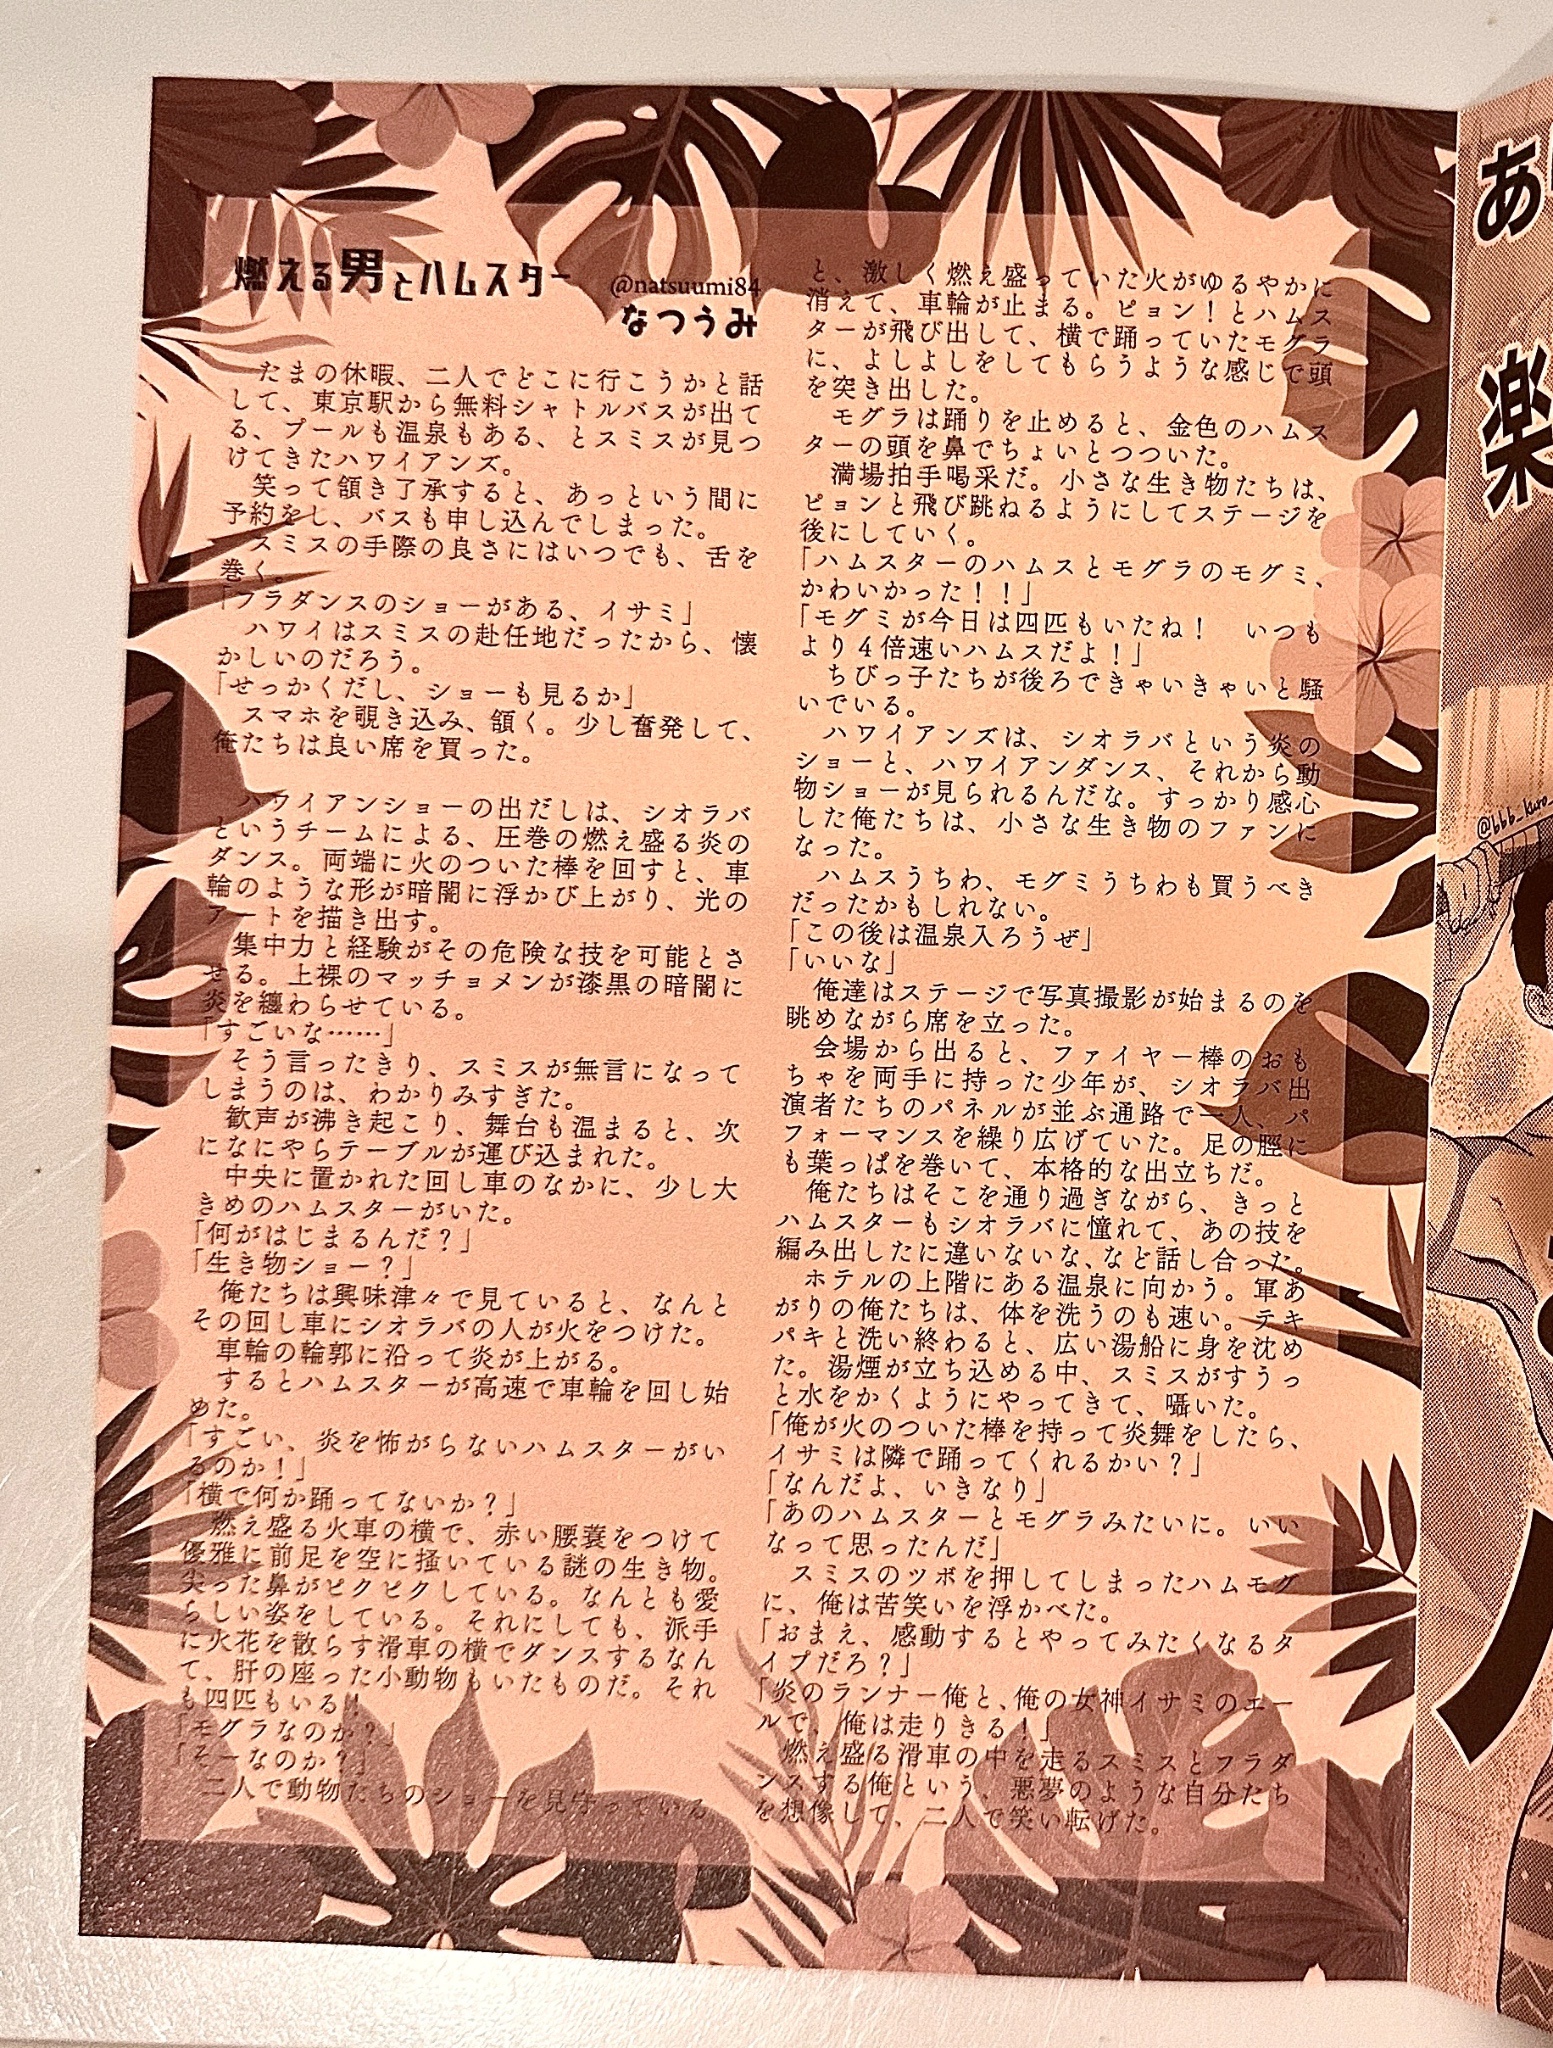 燃える男とハムスター
@natsuumi84
なつうみ
たまの休暇、二人でどこに行こうかと話
して、東京駅から無料シャトルバスが出て
る、プールも温泉もある、とスミスが見つ
けてきたハワイアンズ。
笑って頷き了承すると、あっという間に
予約をし、バスも申し込んでしまった。
スミスの手際の良さにはいつでも、舌を
巻く。
「フラダンスのショーがある、イサミ」
ハワイはスミスの赴任地だったから、懐
かしいのだろう。
「せっかくだし、ショーも見るか」
スマホを覗き込み、頷く。少し奮発して、
俺たちは良い席を買った。
ハワイアンショーの出だしは、シオラバ
というチームによる、圧巻の燃え盛る炎の
ダンス。両端に火のついた棒を回すと、車
輪のような形が暗闇に浮かび上がり、光の
アートを描き出す。
集中力と経験がその危険な技を可能とさ
せる。上裸のマッチョメンが漆黒の暗闇に
炎を纏わらせている。
「すごいな……」
そう言ったきり、スミスが無言になって
しまうのは、わかりみすぎた。
歓声が沸き起こり、舞台も温まると、次
になにやらテーブルが運び込まれた。
中央に置かれた回し車のなかに、少し大
きめのハムスターがいた。
「何がはじまるんだ？」
「生き物ショー？」
俺たちは興味津々で見ていると、なんと
その回し車にシオラバの人が火をつけた。
車輪の輪郭に沿って炎が上がる。
するとハムスターが高速で車輪を回し始
めた。
「すごい、炎を怖がらないハムスターがい
るのか！」
「横で何か踊ってないか？」
燃え盛る火車の横で、赤い腰蓑をつけて
優雅に前足を空に掻いている謎の生き物。
尖った鼻がピクピクしている。なんとも愛
らしい姿をしている。それにしても、派手
に火花を散らす滑車の横でダンスするなん
て、肝の座った小動物もいたものだ。それ
も四匹もいる！
「モグラなのか？」
「そーなのか？」
二人で動物たちのショーを見守っている
と、激しく燃え盛っていた火がゆるやかに
消えて、車輪が止まる。ピョン！とハムス
ターが飛び出して、横で踊っていたモグラ
に、よしよしをしてもらうような感じで頭
を突き出した。
モグラは踊りを止めると、金色のハムス
ターの頭を鼻でちょいとつついた。
満場拍手喝采だ。小さな生き物たちは、
ピョンと飛び跳ねるようにしてステージを
後にしていく。
「ハムスターのハムスとモグラのモグミ、
かわいかった！！」
「モグミが今日は四匹もいたね！　いつも
より４倍速いハムスだよ！」
ちびっ子たちが後ろできゃいきゃいと騒
いでいる。
ハワイアンズは、シオラバという炎の
ショーと、ハワイアンダンス、それから動
物ショーが見られるんだな。すっかり感心
した俺たちは、小さな生き物のファンに
なった。
ハムスうちわ、モグミうちわも買うべき
だったかもしれない。
「この後は温泉入ろうぜ」
「いいな」
俺達はステージで写真撮影が始まるのを
眺めながら席を立った。
会場から出ると、ファイヤー棒のおも
ちゃを両手に持った少年が、シオラバ出
演者たちのパネルが並ぶ通路で一人、パ
フォーマンスを繰り広げていた。足の脛に
も葉っぱを巻いて、本格的な出立ちだ。
俺たちはそこを通り過ぎながら、きっと
ハムスターもシオラバに憧れて、あの技を
編み出したに違いないな、など話し合った。
ホテルの上階にある温泉に向かう。軍あ
がりの俺たちは、体を洗うのも速い。テキ
パキと洗い終わると、広い湯船に身を沈め
た。湯煙が立ち込める中、スミスがすうっ
と水をかくようにやってきて、囁いた。
「俺が火のついた棒を持って炎舞をしたら、
イサミは隣で踊ってくれるかい？」
「なんだよ、いきなり」
「あのハムスターとモグラみたいに。いい
なって思ったんだ」
スミスのツボを押してしまったハムモグ
に、俺は苦笑いを浮かべた。
「おまえ、感動するとやってみたくなるタ
イプだろ？」
「炎のランナー俺と、俺の女神イサミのエー
ルで、俺は走りきる！」
燃え盛る滑車の中を走るスミスとフラダ
ンスする俺という、悪夢のような自分たち
を想像して、二人で笑い転げた。
あ
楽